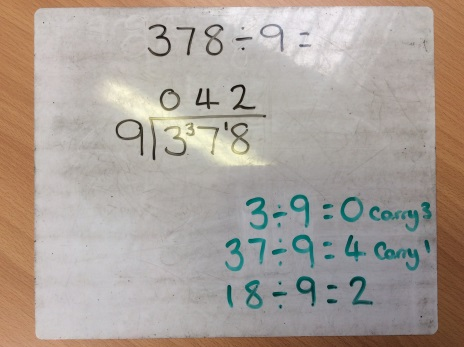 378÷9=
042
9)3³7¹8
3÷9=0 carry 3
37÷9=4 carry 1
18÷9=2